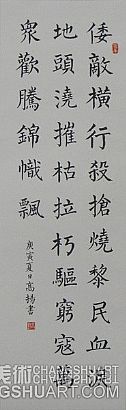 倭敵橫行殺搶燒黎民血淚
地頭澆摧枯拉朽驅窮寇萬
眾歡騰錦幟飄
庚寅夏日高揚書
美術